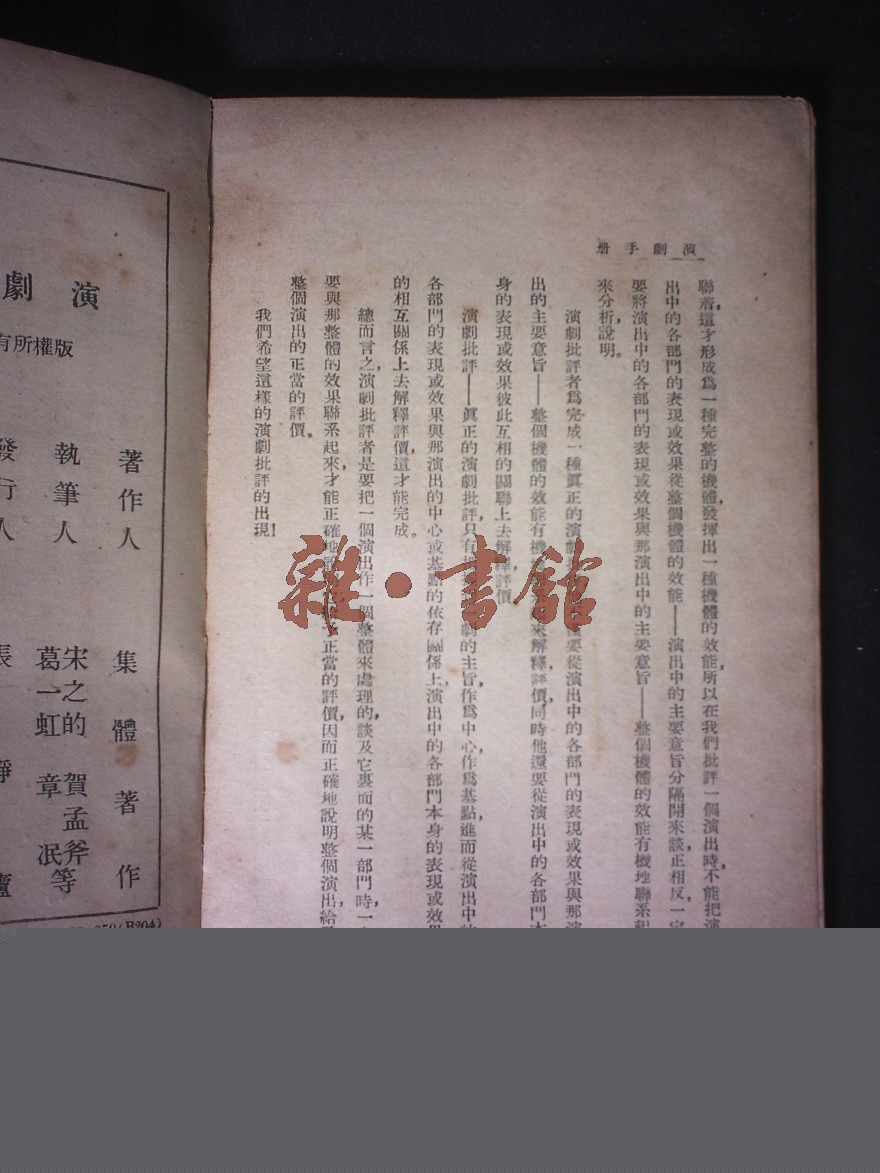 演劇手册
聯着,這才形成爲一種完整的機體,發揮出一種機體的效能,所以在我們批評一個演出時,不能把演
出中的各部門的表現或效果從整個機體的效能——演出中的主要意旨分隔開來談,正相反,一定
要將演出中的各部門的表現或效果與那演出中的主要意旨——整個機體的效能有機地聯系起
來分析說明。
演劇批評者爲完成一種眞正的演劇批評要從演出中的各部門的表現或效果與那演
出的主要意旨——整個機體的效能有機來解釋,評價,同時他還要從演出中的各部門本
身的表現或效果彼此互相的關聯上去解釋,評價
演劇批評——眞正的演劇批評,只有劇的主旨,作爲中心,作爲基點,進而從演出中的
各部門的表現或效果與那演出的中心或基點的依存關係上,演出中的各部門本身的表現或效果
的相互關係上去解釋評價,這才能完成。
總而言之,演劇批評者是要把一個演出作一個整體來處理的,談及它裏面的某一部門時,一
要與那整體的效果聯系起來,才能正確地予正當的評價,因而正確地說明整個演出,給
整個演出的正當的評價。
我們希望這樣的演劇批評的出現!
雜·書館
演劇
有所權版
著作人 集體著作
執筆人 宋之的 賀孟斧 葛一虹 章泯等
發行人 張靜廬
(B204)